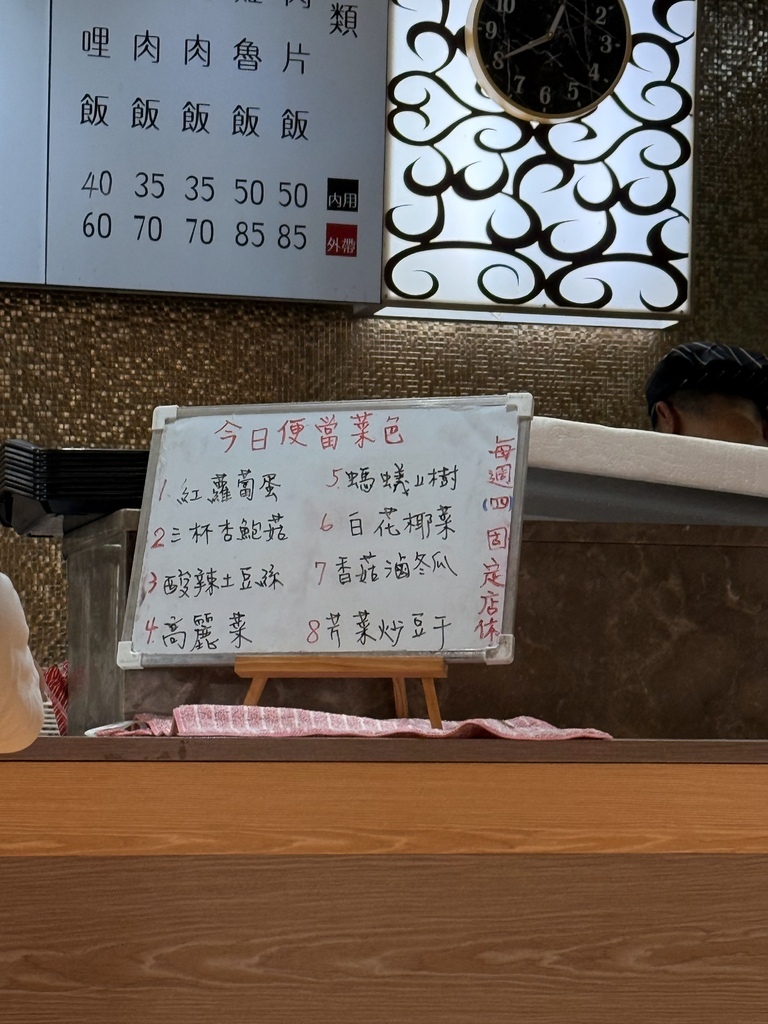 類
片飯 50 85
魯飯 50 85
肉飯 35 70
肉飯 35 70
哩飯 40 60
內用
外帶
10 2
9 3
8 4
7 6 5
今日便當菜色
1. 紅蘿蔔蛋
2 三杯杏鮑菇
3 酸辣土豆絲
4. 高麗菜
5. 螞蟻上樹
6 白花椰菜
7 香菇滷冬瓜
8 芹菜炒豆干
每週(四)固定店休